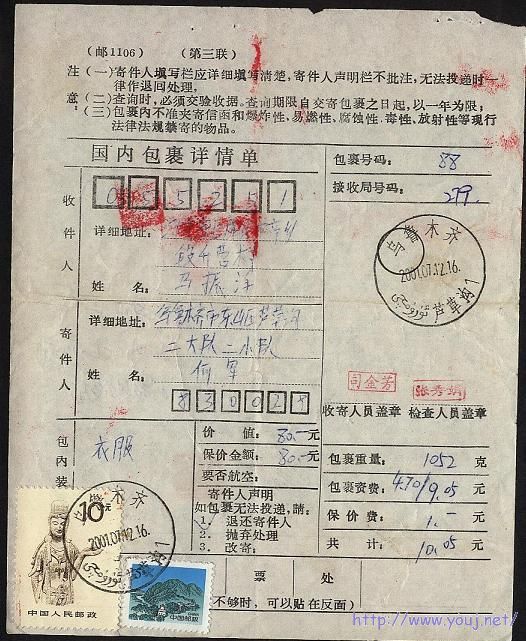 (邮1106) (第三联)
注 (一)寄件人填写栏应详细填写清楚，寄件人声明栏不批注，无法投递时一
律作退回处理。
意 (二)查询时，必须交验收据。查询期限自交寄包裹之日起，以一年为限；
(三)包裹内不准夹寄信函和爆炸性，易燃性、腐蚀性、毒性，放射性等现行
法律法规禁寄的物品。
国内包裹详情单
包裹号码： 88
接收局号码： 279
收件人
详细地址：
姓名： 马振洋
乌鲁木齐
2001.07.12.16
芦草沟1
寄件人
详细地址：
二大队二小队
姓名： 何军
830028
司金芳 张秀娟
收寄人员盖章 检查人员盖章
包内装
衣服
价值： 80.—元
保价金额： 80.—元
要否航空：
寄件人声明
如包裹无法投递，請：
1. 退还寄件人
2. 抛弃处理
3. 改寄：
包裹重量： 1052 克
包裹资费： 4.70/9.05 元
保价费： 1.— 元
共计： 10.05 元
乌鲁木齐
2001.07.12.16
10元
中国人民邮政
中国邮政
票 处
不够时，可以贴在反面)
http://www.youj.net/